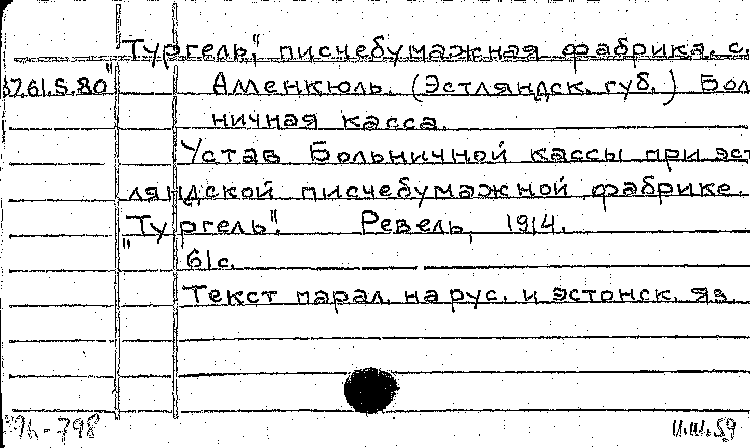 "Тургель", писчебумажная фабрика. с.
37.61.5.80 Алленкюль. (Эстляндск. губ.) Бол
ничная касса.
Устав Больничной кассы при эст
ляндской писчебумажной фабрике.
"Тургель". Ревель, 1914.
61с.
Текст парал. на рус. и эстонск. яз
-798 11.III.59